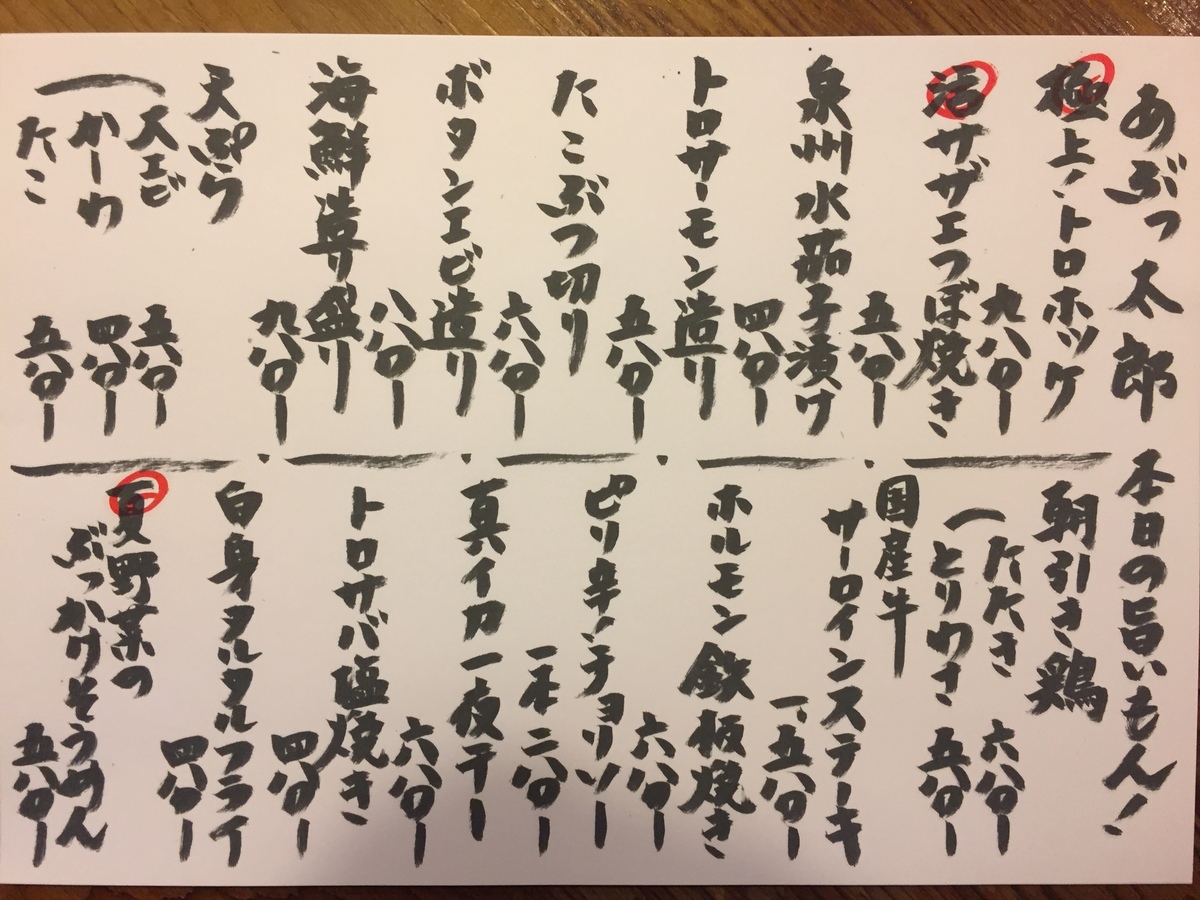 あぶっ太郎 本日の旨いもん!
極上!トロホッケ
九八〇ー
活サザエつぼ焼き
五八〇ー
泉州水茄子漬け
四八〇ー
トロサーモン造り
五八〇ー
たこぶつ切り
六八〇ー
ボタンエビ造り
八八〇ー
海鮮造り盛り
九八〇ー
天ぷら
大エビ 五八〇ー
かしわ 四八〇ー
たこ 五八〇ー
朝引き鶏
たたき 六八〇ー
とりわさ 五八〇ー
国産牛
サーロインステーキ
一、五八〇ー
ホルモン鉄板焼き
六八〇ー
ピリ辛!チョリソー
一本二八〇ー
真イカ一夜干し
六八〇ー
トロサバ塩焼き
四八〇ー
白身タルタルフライ
四八〇ー
夏野菜の
ぶっかけそうめん
五八〇ー